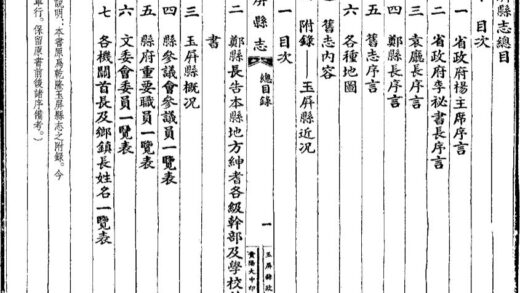 屏縣志總目
目次
一 省政府楊主席序言
二 省政府李秘書長序言
三 袁廳長序言
四 鄭縣長序言
五 舊志序言
六 各種地圖
舊志內容
附錄——玉屏縣近况
一 目次
屏縣志 總目錄 一
玉屏縣政
貴陽大中印
二 鄭縣長告本縣地方紳耆各級幹部及學校
書
三 玉屏縣概況
四 縣參議會參議員一覽表
五 縣府重要職員一覽表
六 文委會委員一覽表
七 各機關首長及鄉鎮長姓名一覽表
說明：本書原爲乾隆玉屏縣志之附錄。今
單行。保留原書前後諸序備考。）